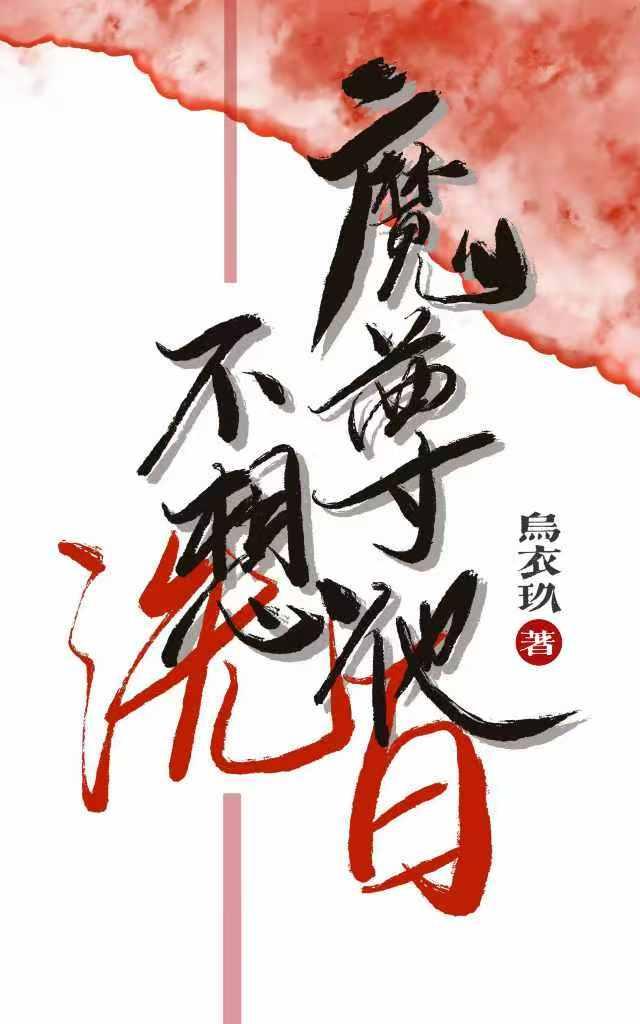 魔尊他
不想洗白
烏衣玖
著